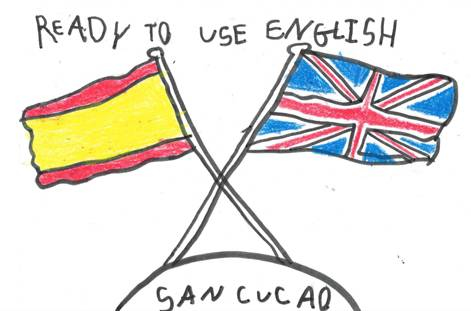 READY TO USE ENGLISH
SAN CUCAO